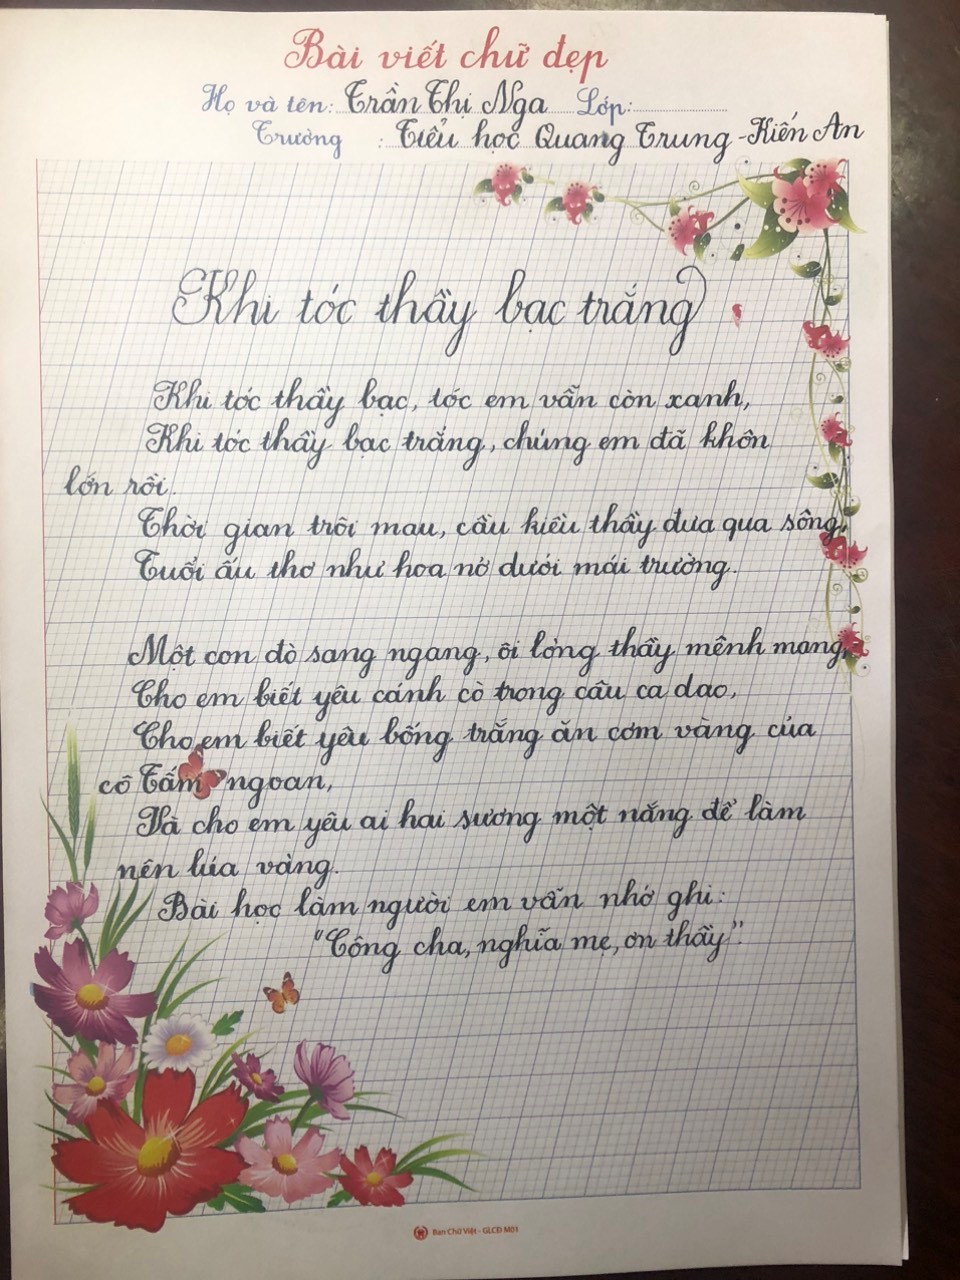 Bài viết chữ đẹp
Họ và tên: Trần Thị Nga Lớp:
Trường : Tiểu học Quang Trung - Kiến An
Khi tóc thầy bạc trắng
Khi tóc thầy bạc, tóc em vẫn còn xanh,
Khi tóc thầy bạc trắng, chúng em đã khôn
lớn rồi.
Thời gian trôi mau, cầu kiều thầy đưa qua sông,
Tuổi ấu thơ như hoa nở dưới mái trường.
Một con đò sang ngang, ôi lòng thầy mênh mang,
Cho em biết yêu cánh cò trong câu ca dao,
Cho em biết yêu bống trắng ăn cơm vàng của
cô Tấm ngoan,
Và cho em yêu ai hai sương một nắng để làm
nên lúa vàng.
Bài học làm người em vẫn nhớ ghi:
"Công cha, nghĩa mẹ, ơn thầy".
Ban Chữ Việt - GLCĐ M01